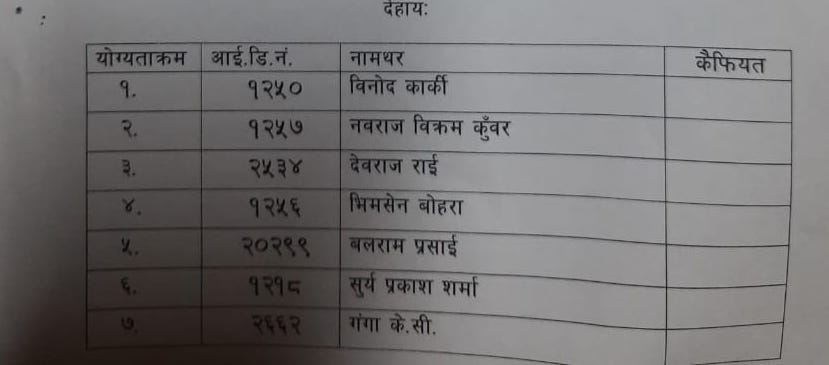 देहायः
योग्यताक्रम आई.डि.नं. नामथर कैफियत
१. १२५० विनोद कार्की
२. १२५७ नवराज विक्रम कुँवर
३. २५३४ देवराज राई
४. १२५६ भिमसेन बोहरा
५. २०२९९ बलराम प्रसाई
६. १२१८ सुर्य प्रकाश शर्मा
७. २६६२ गंगा के.सी.